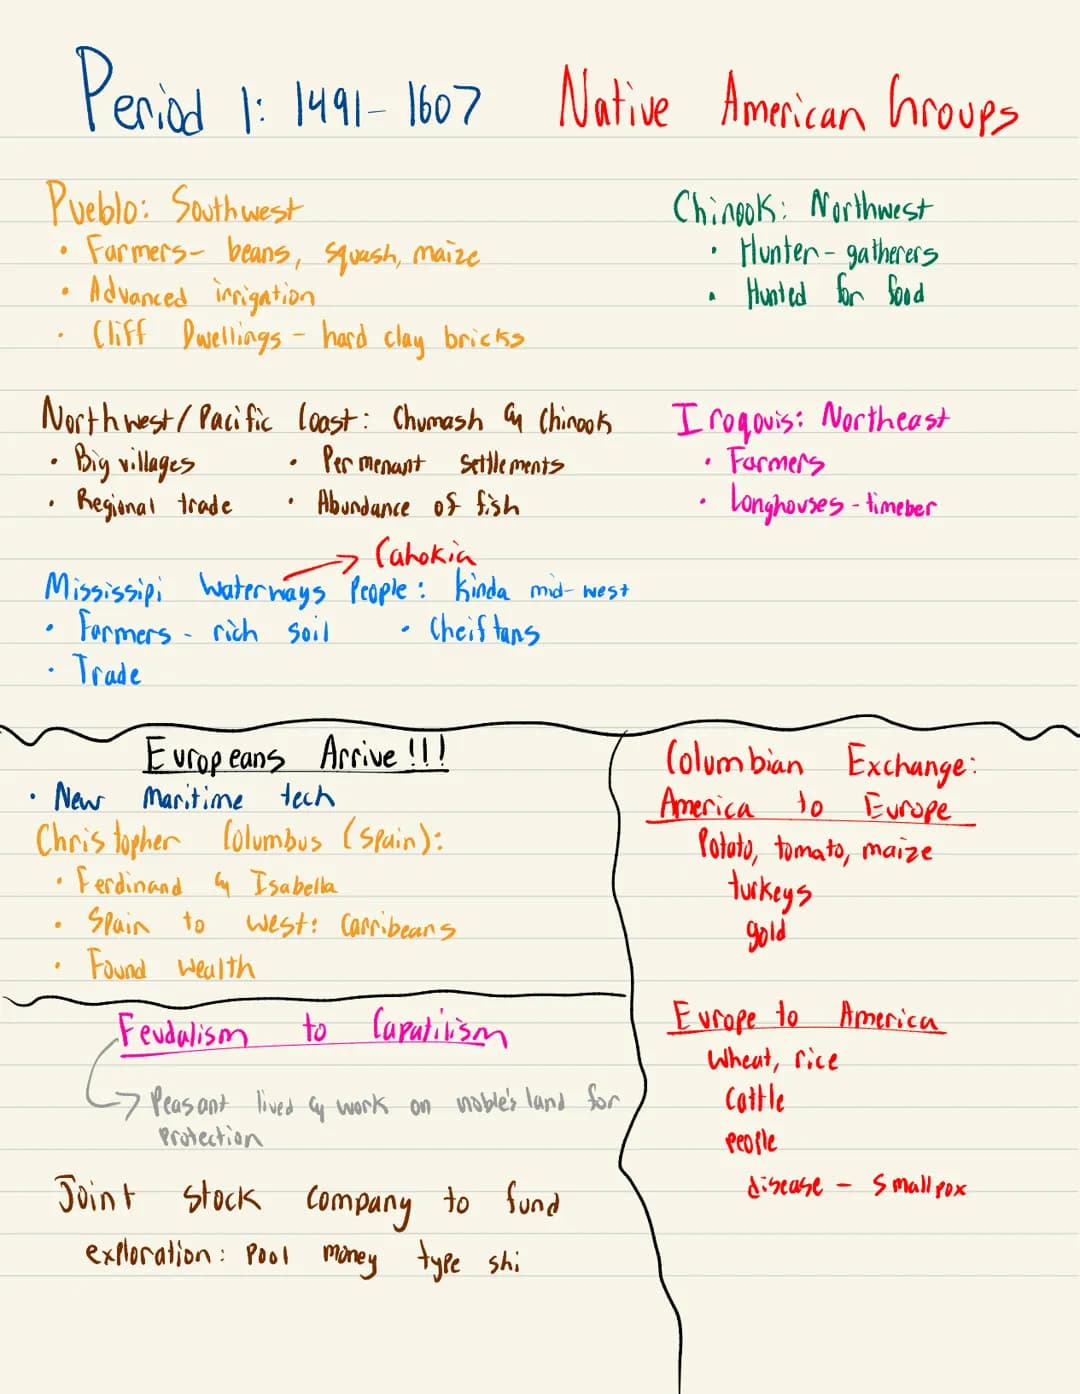 Period 1: 1491-1607 Native American Groups
Pueblo: Southwest
• Farmers- beans, squash, maize
• Advanced irrigation
• Cliff Dwellings - hard clay bricks
Chinook: Northwest
• Hunter-gatherers
• Hunted for food
Northwest/Pacific Coast: Chumash & Chinook
• Big villages • Permenant Settlements
• Regional trade • Abundance of fish
Iroqouis: Northeast
• Farmers
• Longhouses - timeber
Cahokia
Mississipi Waterways People: Kinda mid-west
• Farmers - rich soil • Cheiftans
• Trade
Europeans Arrive!!!
• New Maritime tech
Christopher Columbus (Spain):
• Ferdinand & Isabella
• Spain to west: Carribeans
• Found Wealth
Feudalism to Capatilism
Peasant lived & work on noble's land for
Protection
Joint stock company to fund
exploration: Pool money type shi
Columbian Exchange:
America to Europe
Potato, tomato, maize
turkeys
gold
Europe to America
Wheat, rice
Cattle
people
disease - Smallpox